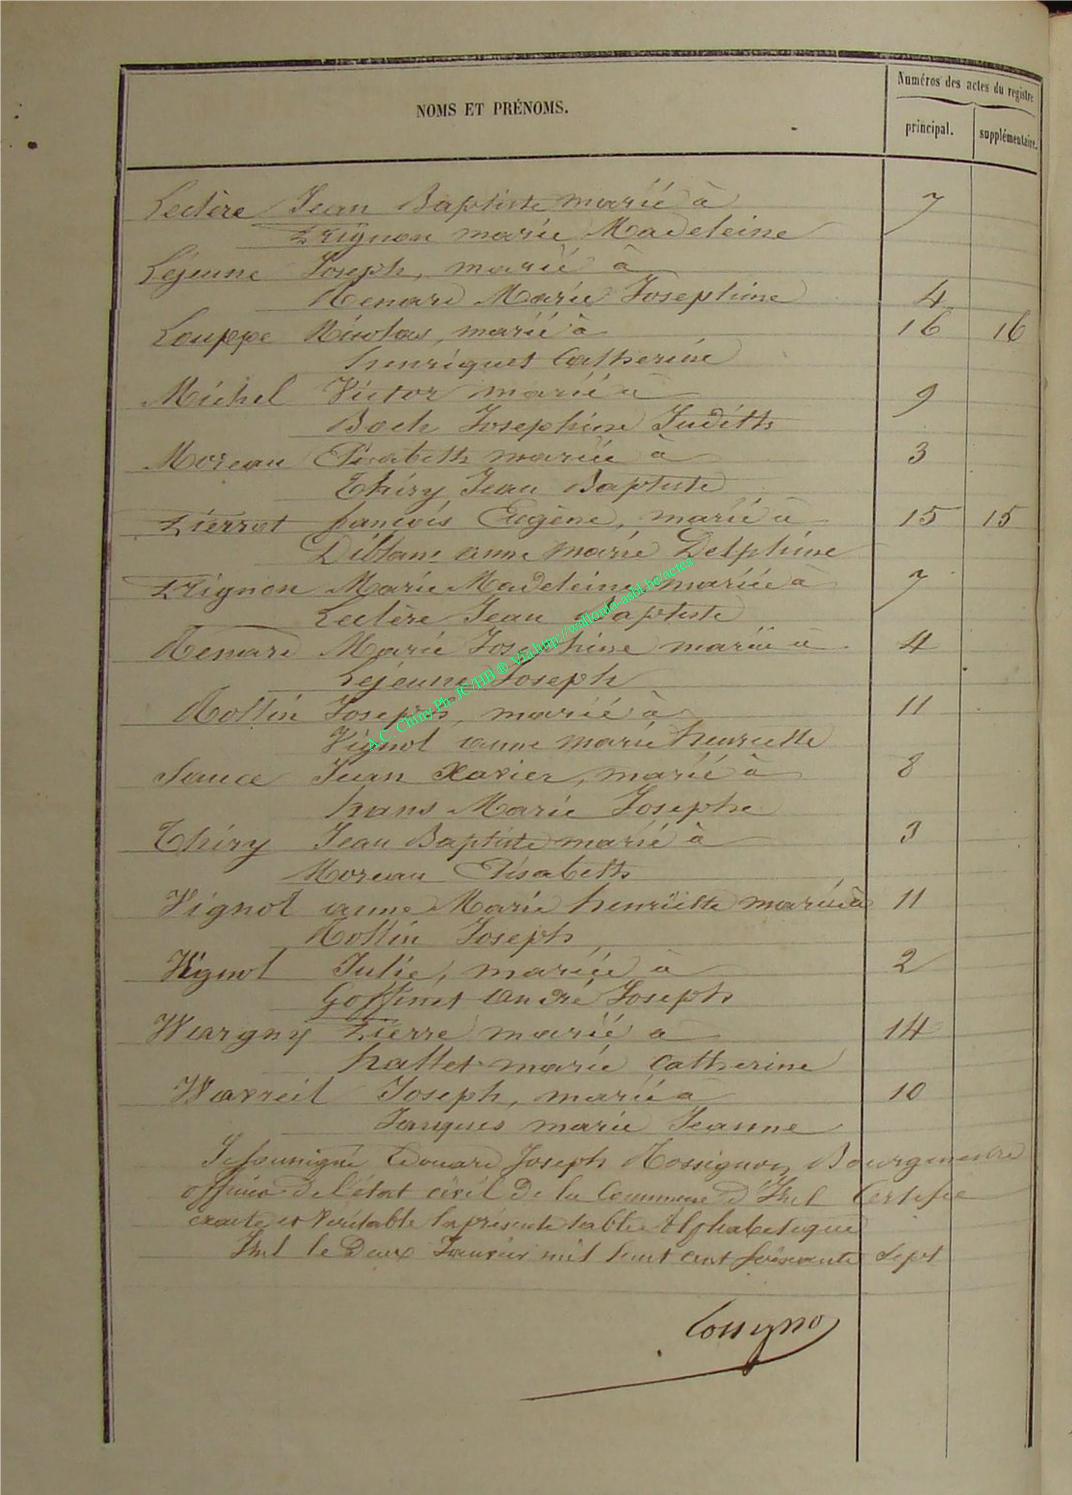 Numéros des actes du registre
NOMS ET PRÉNOMS.
principal. supplémentaire.
Leclère Jean Baptiste marié à 7
Prignon marie Madeleine
Lejeune Joseph, marié à
Renard Marie Josephine 4
Louppe Nicolas, marié à 16 16
henriquet Catherine
Michel Victor marié à 9
Boch Josephine Judith
Moreau Elisabeth mariée à 3
Thiry Jean Baptiste
Pierrot francois Eugène, marié à 15 15
anne marie Delphine
Prignon Marie Madeleine mariée à 7
Leclère Jean Baptiste
Renard Marie Josephine mariée à 4
Lejeune Joseph
Rollin Joseph, marié à 11
Vignol anne marie henriette
Sauce Jean Xavier, marié à 8
hans Marie Josephe
Thiry Jean Baptiste marié à 3
Moreau Elisabeth
Vignol anne Marie henriette mariée à 11
Rollin Joseph
Vignol Julie, mariée à 2
Goffinet André Joseph
Wargny Pierre marié à 14
hallet marie Catherine
Wavreil Joseph, marié à 10
Jacques marie Jeanne
Je soussigné Edouard Joseph Rossignon, Bourgmestre
officier de l'état civil de la Commune d'Izel Certifie
exacte et Véritable la présente table Alphabetique
Izel le Deux Janvier mil huit cent soixante sept
A.C. Chiny Ph. JC/HB © Via http://wallonia-asbl.be/actes